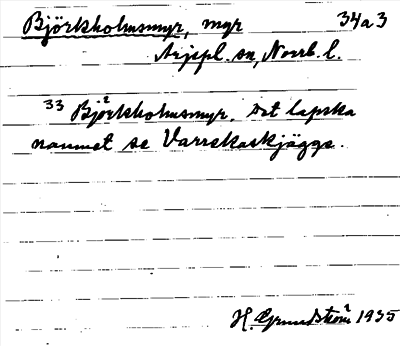 Björkholmsmyr, myr 34a3
Arjepl. sn, Norrb. l.
33 Björkholmsmyr. Det lapska
namnet se Varrekaskjägge.
H. Grundström 1935